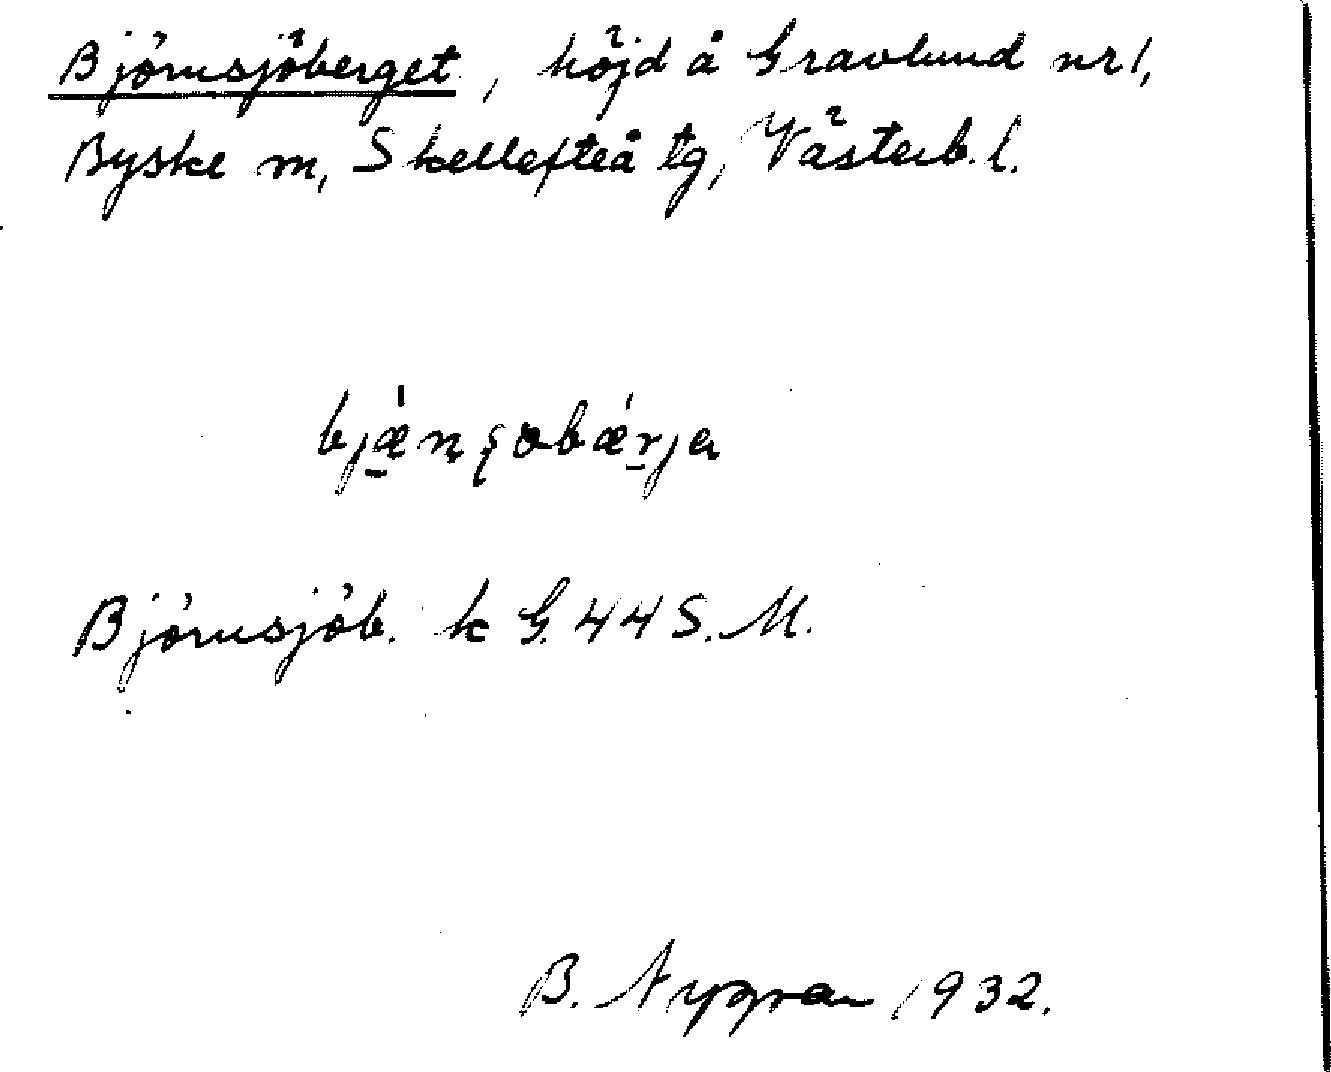 Björnsjöberget, höjd å Gravlund nr 1,
Byske m, Skellefteå tg, Västerb. l.
bjǽ̱ṇṣɷbǽṟja
Björnsjöb. k G. 44 S. M.
B. Nygren 1932.